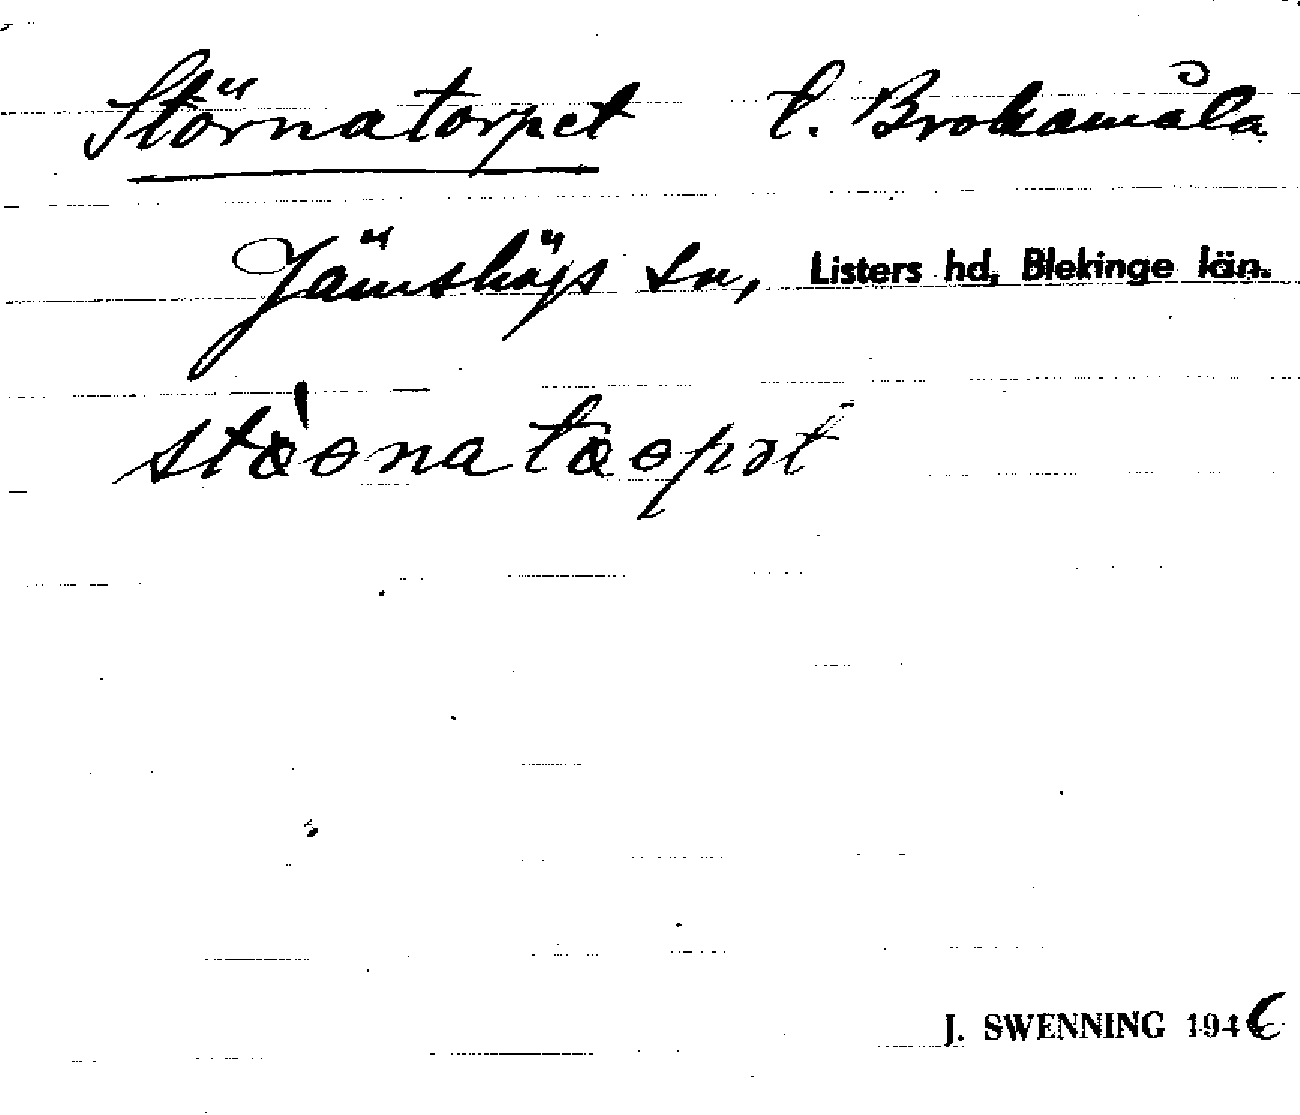 Störnatorpet t. Brokamåla
Jämshögs sn, Listers hd, Blekinge län.
J. SWENNING 1946